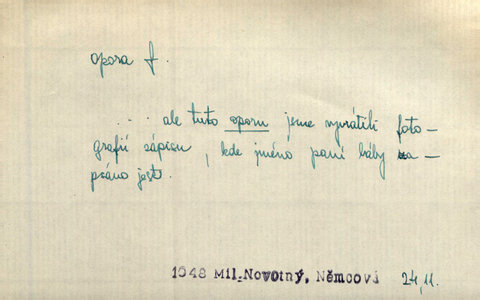 opora f.
... ale tuto oporu jsme vyvrátili foto-
grafií zápisu, kde jméno paní báby na-
psáno jest.
1948 Mil.Novotný, Němcová 24,11.